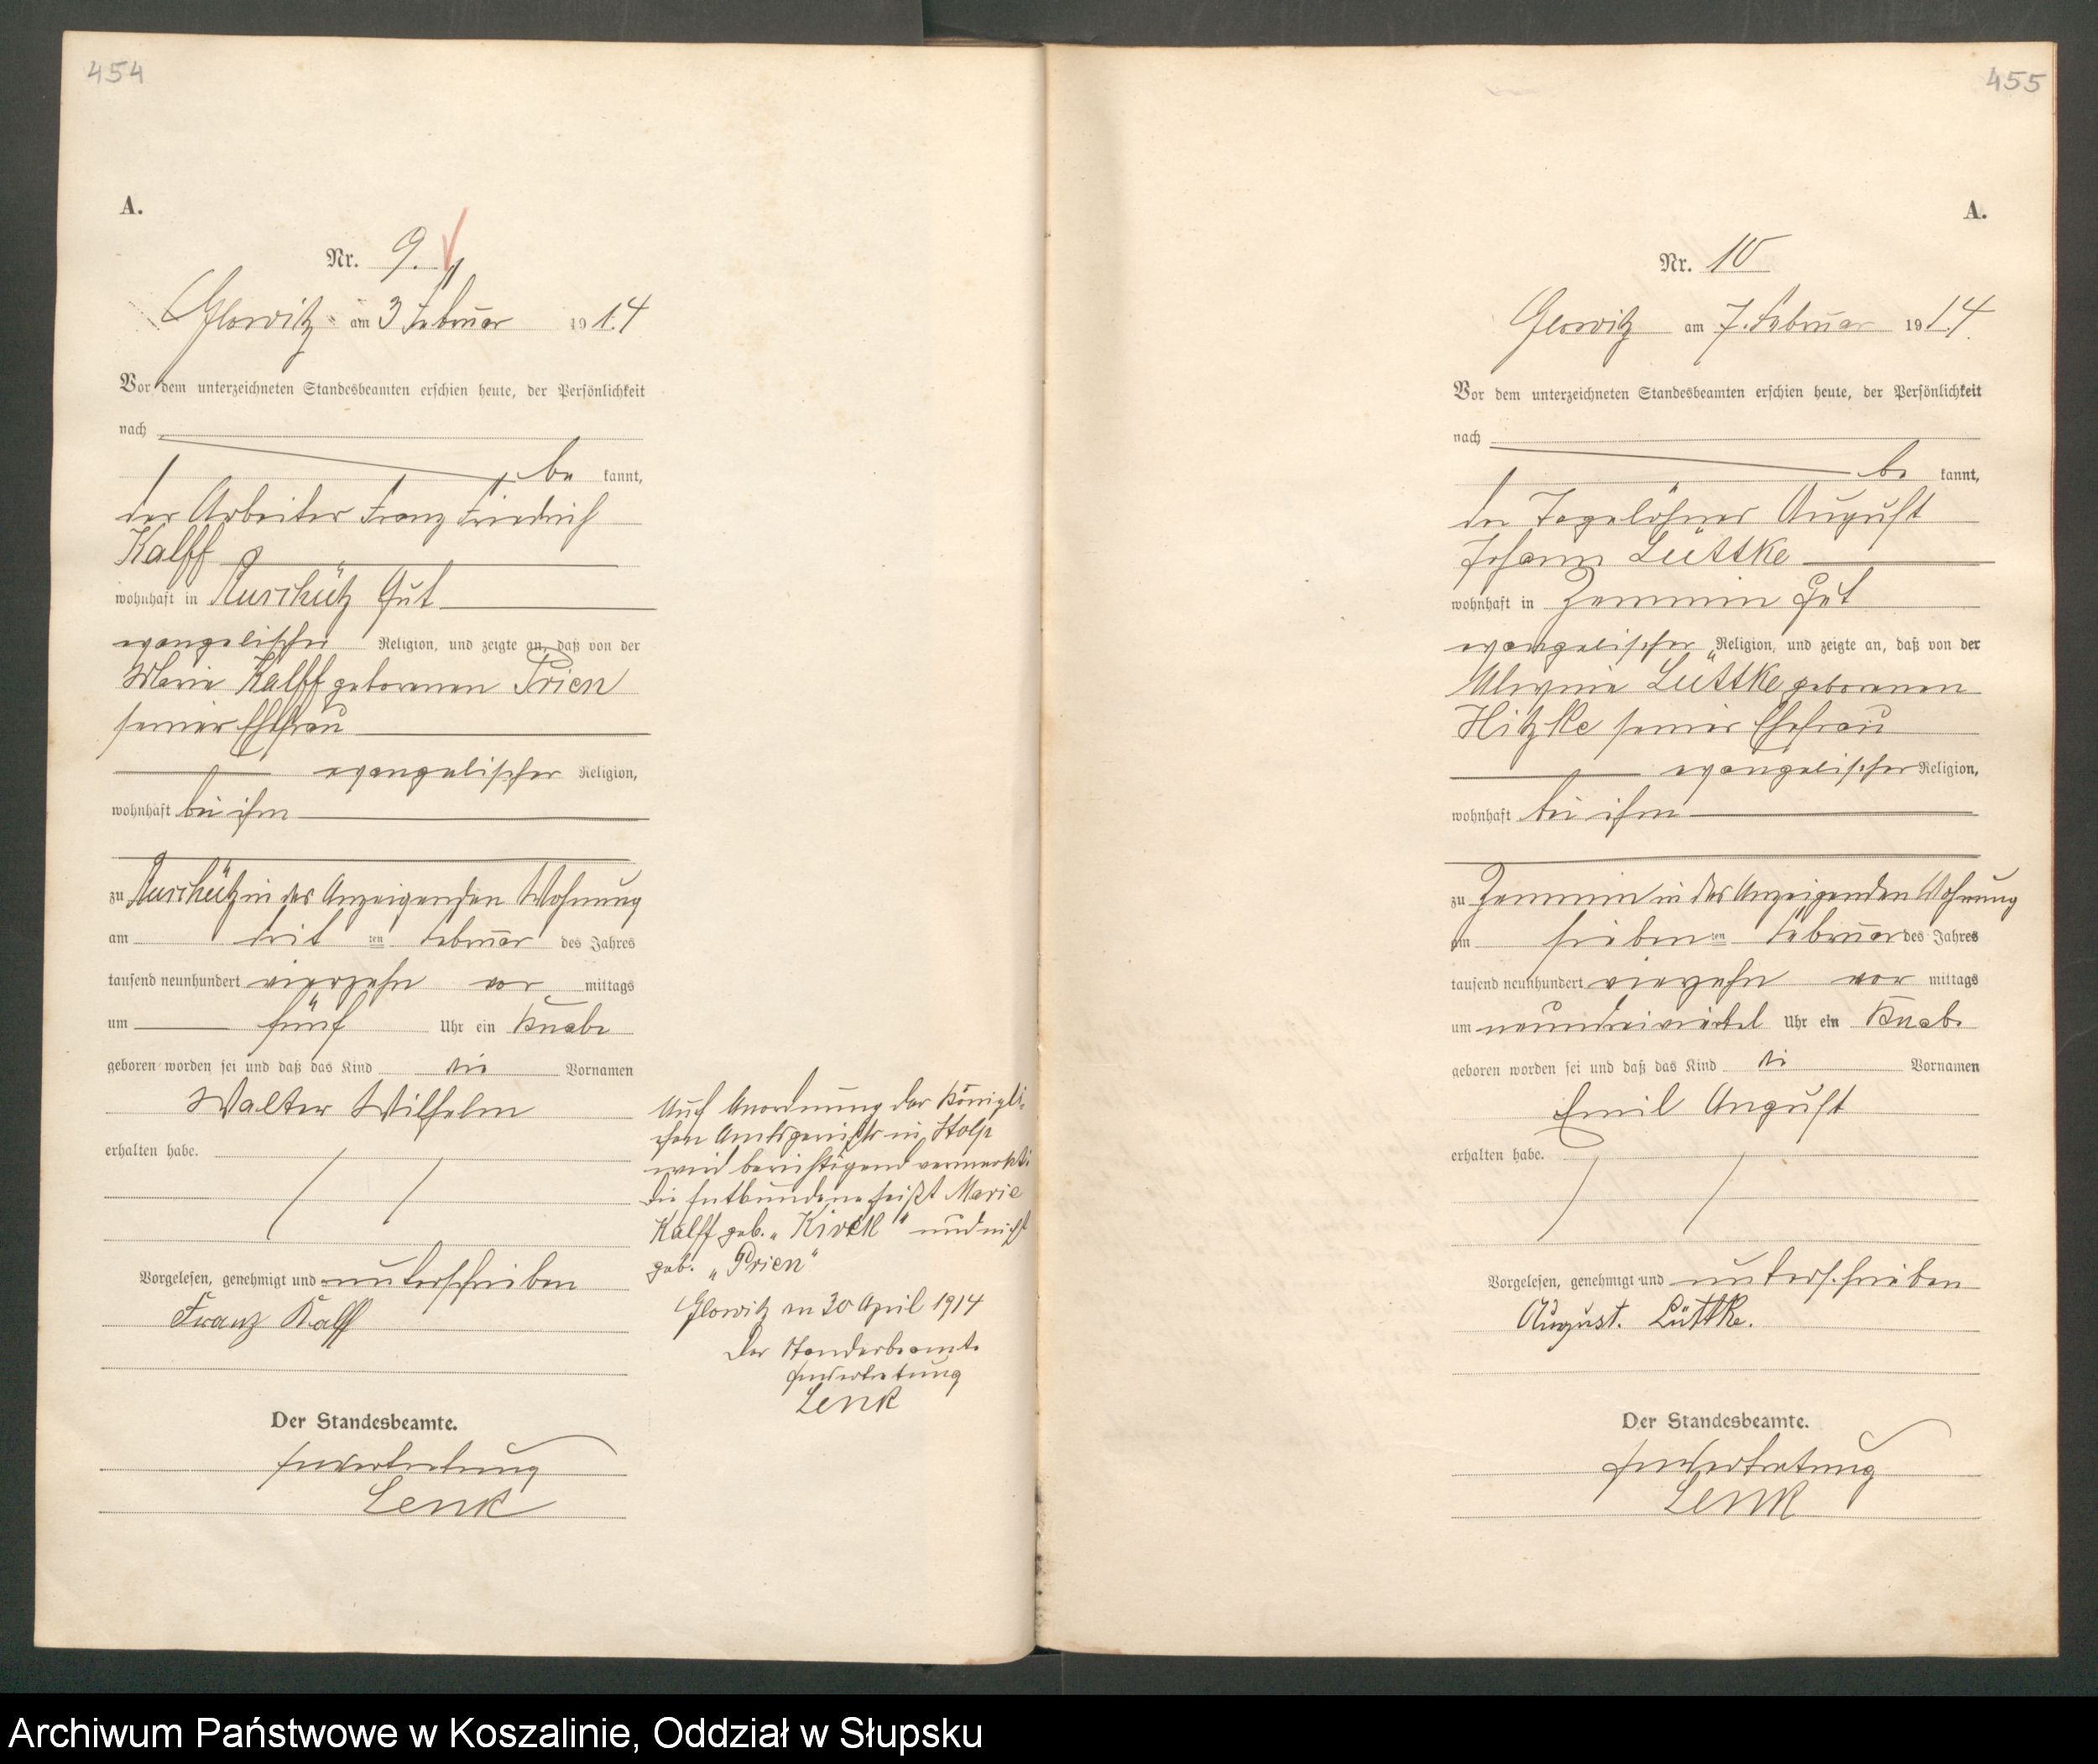 454
A.
Nr. 9.
Glowitz am 3 Februar 1914
Vor dem unterzeichneten Standesbeamten erschien heute, der Persönlichkeit
nach
be kannt,
der Arbeiter Franz Friedrich
Kalff
wohnhaft in Ruschütz Gut
evangelischer Religion, und zeigte an, daß von der
Marie Kalff geborenen Prien
seiner Ehefrau
evangelischer Religion,
wohnhaft bei ihm
zu Ruschütz in des Anzeigenden Wohnung
am drit ten Februar des Jahres
tausend neunhundert vierzehn vor mittags
um fünf Uhr ein Knabe
geboren worden sei und daß das Kind die Vornamen
Walter Wilhelm
erhalten habe.
Vorgelesen, genehmigt und unterschrieben
Franz Kalff
Der Standesbeamte.
In Vertretung
Lenk
Auf Anordnung des Königli-
chen Amtsgerichts in Stolp
wird berichtigend vermerkt:
die Entbundene heißt Marie
Kalff geb. „Kirck" und nicht
geb. „Prien"
Glowitz am 30 April 1914
Der Standesbeamte
In Vertretung
Lenk
455
A.
Nr. 10
Glowitz am 7. Februar 1914.
Vor dem unterzeichneten Standesbeamten erschien heute, der Persönlichkeit
nach
be kannt,
der Tagelöhner August
Johann Lüttke
wohnhaft in Zemmin Gut
evangelischer Religion, und zeigte an, daß von der
Alwine Lüttke geborenen
Hitzke seiner Ehefrau
evangelischer Religion,
wohnhaft bei ihm
zu Zemmin in des Anzeigenden Wohnung
am sieben ten Februar des Jahres
tausend neunhundert vierzehn vor mittags
um neundreiviertel Uhr ein Knabe
geboren worden sei und daß das Kind die Vornamen
Emil August
erhalten habe.
Vorgelesen, genehmigt und unterschrieben
August. Lüttke.
Der Standesbeamte.
In Vertretung
Lenk
Archiwum Państwowe w Koszalinie, Oddział w Słupsku